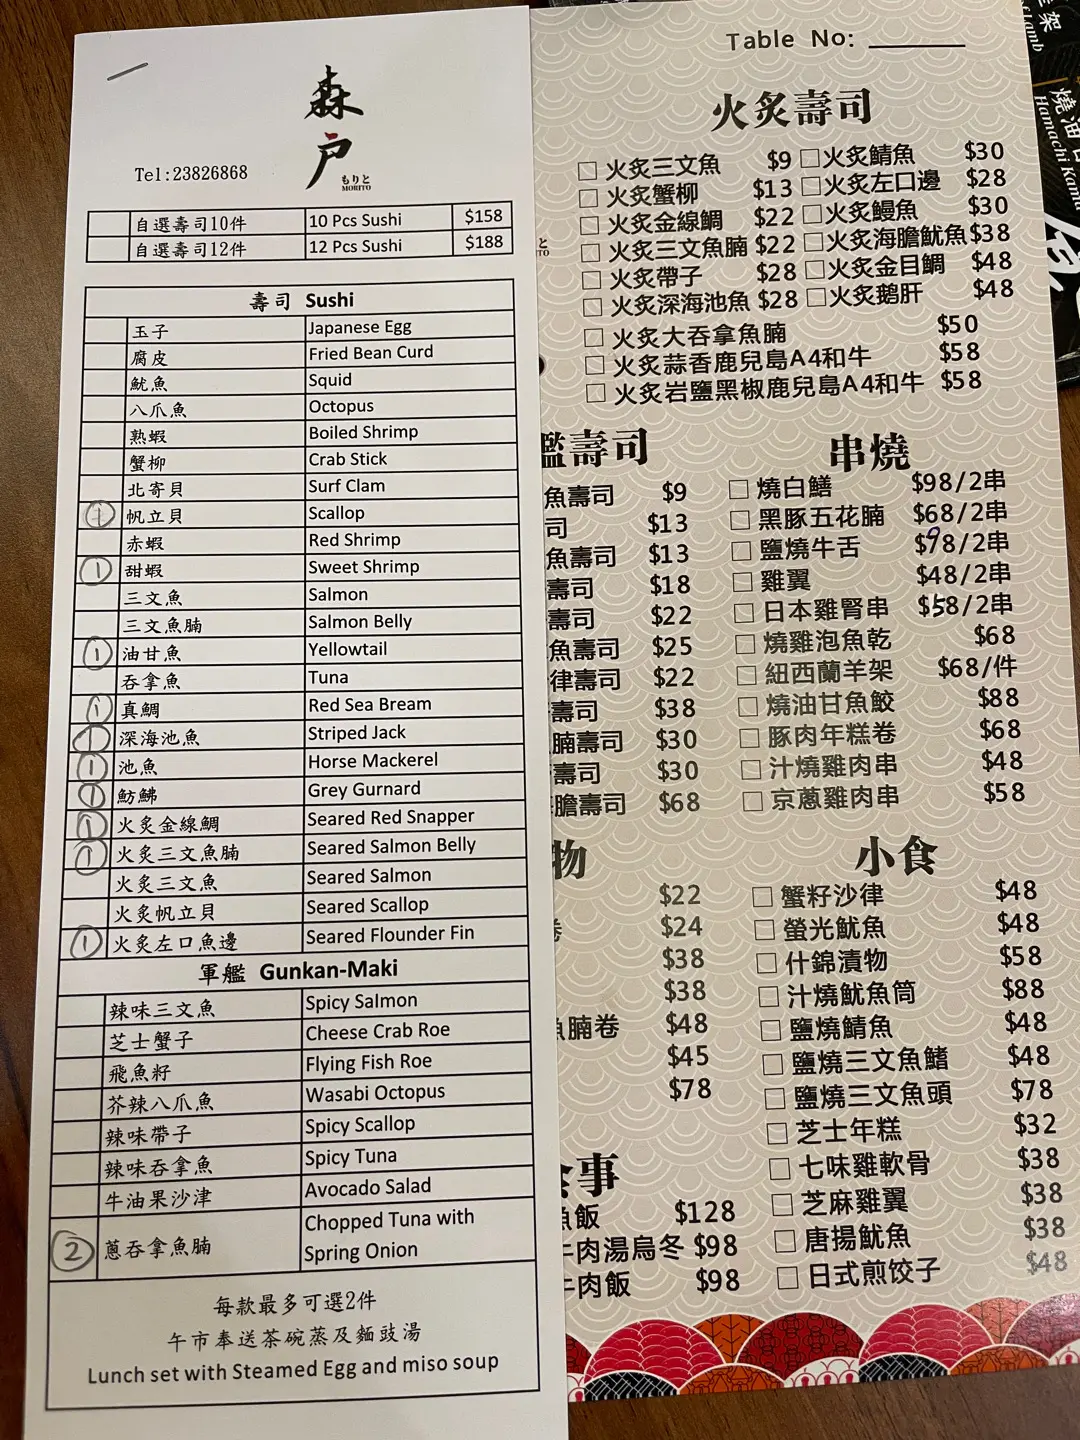 森
戸
もりと
MORITO
Tel:23826868
自選壽司10件 10 Pcs Sushi $158
自選壽司12件 12 Pcs Sushi $188
壽司 Sushi
玉子 Japanese Egg
腐皮 Fried Bean Curd
魷魚 Squid
八爪魚 Octopus
熟蝦 Boiled Shrimp
蟹柳 Crab Stick
北寄貝 Surf Clam
1 帆立貝 Scallop
赤蝦 Red Shrimp
1 甜蝦 Sweet Shrimp
三文魚 Salmon
三文魚腩 Salmon Belly
1 油甘魚 Yellowtail
吞拿魚 Tuna
1 真鯛 Red Sea Bream
1 深海池魚 Striped Jack
1 池魚 Horse Mackerel
1 魴鮄 Grey Gurnard
1 火炙金線鯛 Seared Red Snapper
1 火炙三文魚腩 Seared Salmon Belly
火炙三文魚 Seared Salmon
火炙帆立貝 Seared Scallop
1 火炙左口魚邊 Seared Flounder Fin
軍艦 Gunkan-Maki
辣味三文魚 Spicy Salmon
芝士蟹子 Cheese Crab Roe
飛魚籽 Flying Fish Roe
芥辣八爪魚 Wasabi Octopus
辣味帶子 Spicy Scallop
辣味吞拿魚 Spicy Tuna
牛油果沙津 Avocado Salad
2 蔥吞拿魚腩 Chopped Tuna with
Spring Onion
每款最多可選2件
午市奉送茶碗蒸及麵豉湯
Lunch set with Steamed Egg and miso soup
Table No:
火炙壽司
火炙三文魚 $9 火炙鯖魚 $30
火炙蟹柳 $13 火炙左口邊 $28
火炙金線鯛 $22 火炙鰻魚 $30
火炙三文魚腩 $22 火炙海膽魷魚 $38
火炙帶子 $28 火炙金目鯛 $48
火炙深海池魚 $28 火炙鵝肝 $48
火炙大吞拿魚腩 $50
火炙蒜香鹿兒島A4和牛 $58
火炙岩鹽黑椒鹿兒島A4和牛 $58
艦壽司
魚壽司 $9
司 $13
魚壽司 $13
壽司 $18
壽司 $22
魚壽司 $25
律壽司 $22
壽司 $38
腩壽司 $30
壽司 $30
膽壽司 $68
物
$22
卷 $24
$38
$38
魚腩卷 $48
$45
$78
食事
魚飯 $128
牛肉湯烏冬 $98
牛肉飯 $98
串燒
燒白鱔 $98/2串
黑豚五花腩 $68/2串
鹽燒牛舌 $98/2串
雞翼 $48/2串
日本雞腎串 $58/2串
燒雞泡魚乾 $68
紐西蘭羊架 $68/件
燒油甘魚鮫 $88
豚肉年糕卷 $68
汁燒雞肉串 $48
京蔥雞肉串 $58
小食
蟹籽沙律 $48
螢光魷魚 $48
什錦漬物 $58
汁燒魷魚筒 $88
鹽燒鯖魚 $48
鹽燒三文魚鰭 $48
鹽燒三文魚頭 $78
芝士年糕 $32
七味雞軟骨 $38
芝麻雞翼 $38
唐揚魷魚 $38
日式煎饺子 $48
架
Lamb
燒油
Hamachi Kama